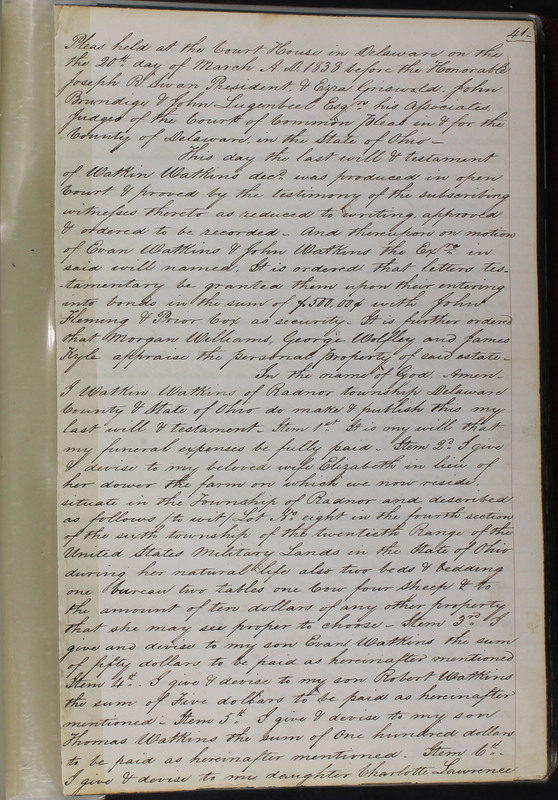 41-
Pleas held at the Court House in Delaware on the
the 20th day of March A.D. 1838 before the Honorable
Joseph R. Swan President, & Ezra Griswold, John
Brundige & John Lugenbeel Esqrs his Associates
Judges of the Court of Common Pleas in & for the
County of Delaware, in the State of Ohio -
This day the last will & testament
of Watkin Watkins decd. was produced in open
Court & proved by the testimony of the subscribing
witnesses thereto as reduced to writing, approved
& ordered to be recorded - And thereupon on motion
of Evan Watkins & John Watkins the Exrs in
said will named, It is ordered that letters tes-
tamentary be granted them upon their entering
into bonds in the sum of $500.00 with John
Fleming & Prior Cox as security - It is further ordered
that Morgan Williams, George Wolfley and James
Kyle appraise the personal property of said estate -
In the name of God. Amen -
I Watkin Watkins of Radnor township Delaware
County & State of Ohio do make & publish this my
last will & testament - Item 1st It is my will that
my funeral expenses be fully paid - Item 2d I give
& devise to my beloved wife Elizabeth in lieu of
her dower the farm on which we now reside,
situate in the Township of Radnor and described
as follows (to wit) Lot No. eight in the fourth section
of the sixth township of the twentieth Range of the
United States Military Lands in the State of Ohio
during her natural life also two beds & bedding
one bureau two tables one Cow four sheep & to
the amount of ten dollars of any other property
that she may see proper to choose - Item 3rd I
give and devise to my son Evan Watkins the sum
of fifty dollars to be paid as hereinafter mentioned
Item 4th. I give & devise to my son Robert Watkins
the sum of Five dollars to be paid as hereinafter
mentioned - Item 5th I give & devise to my son
Thomas Watkins the sum of One hundred dollars
to be paid as hereinafter mentioned. Item 6th.
I give & devise to my daughter Charlotte Lawrence